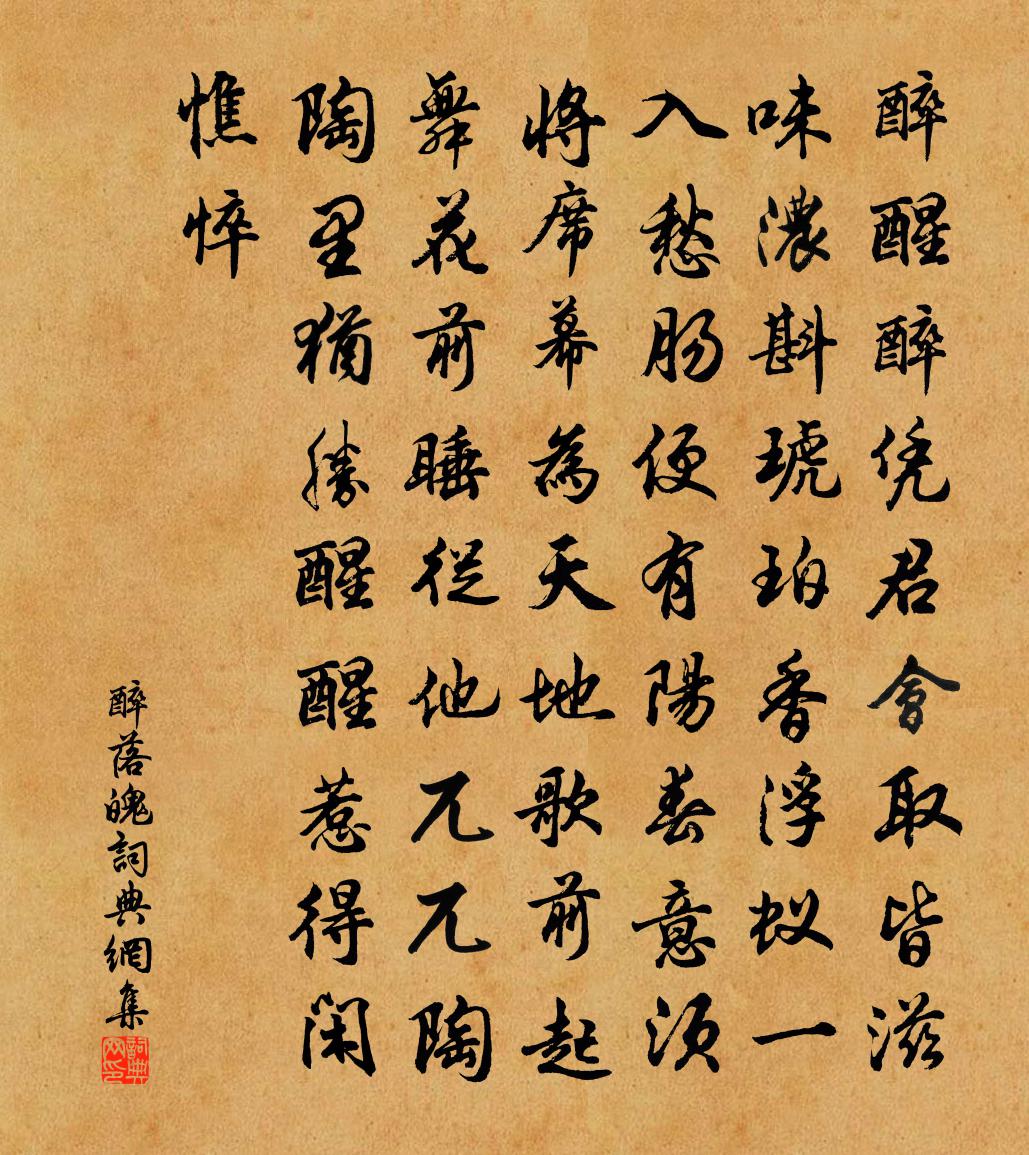 醉醒醉凭君會取皆滋
味濃斟琥珀香浮蚁一
入愁肠便有陽春意須
將席幕為天地歌前起
舞花前睡從他兀兀陶
陶里猶勝醒醒惹得闲
憔悴
醉落魄詞典網集
詞典
网印